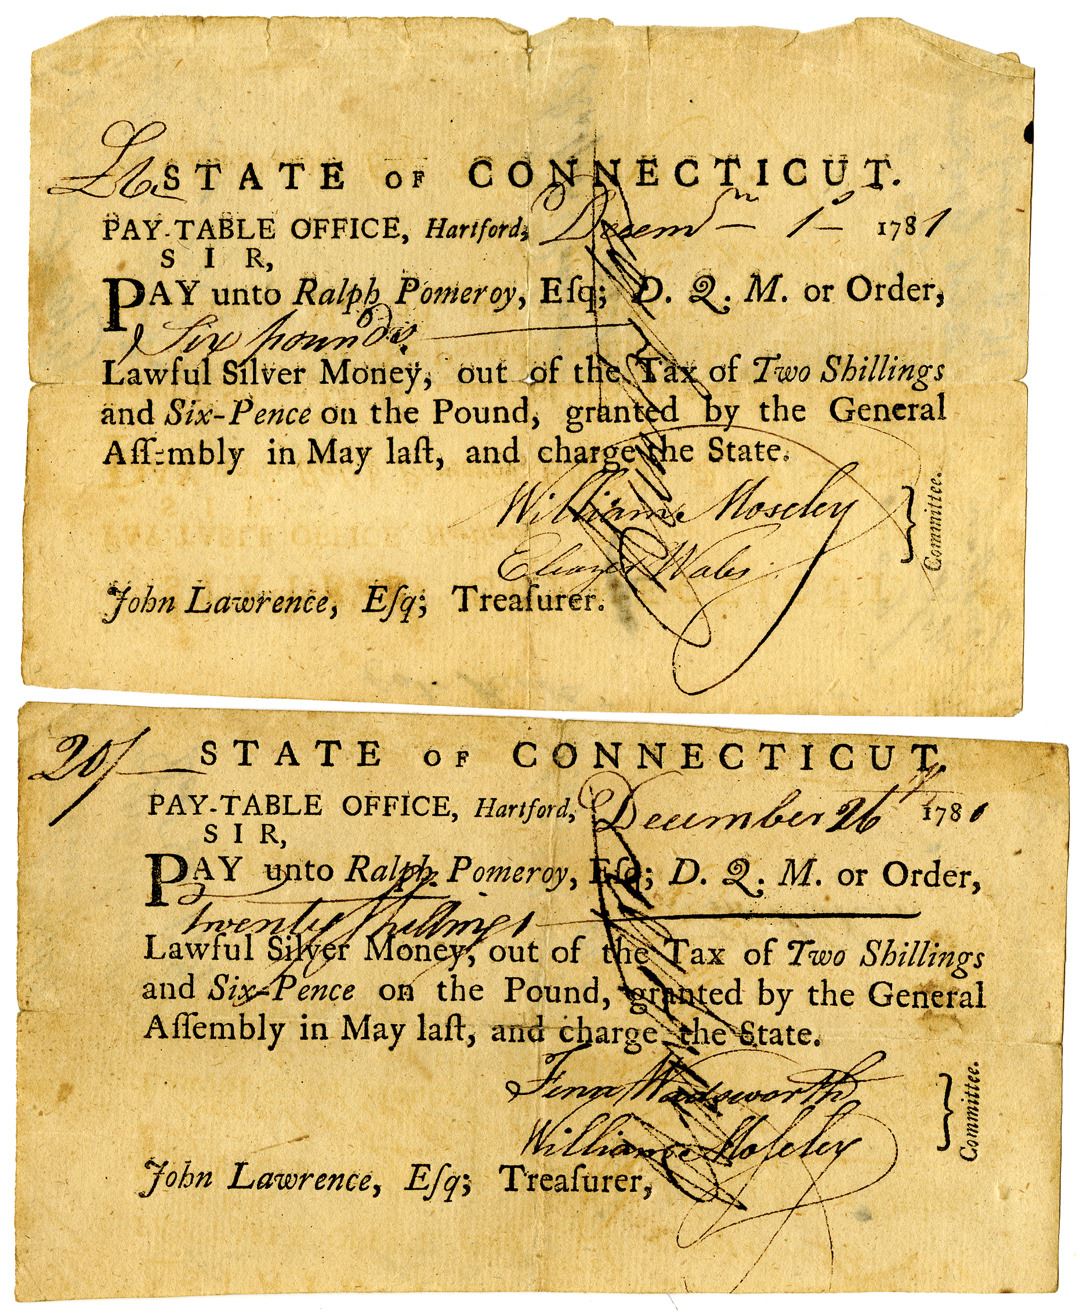 £6 STATE OF CONNECTICUT.
PAY-TABLE OFFICE, Hartford, Decemr 1st 1781
SIR,
PAY unto Ralph Pomeroy, Eſq; D. Q. M. or Order,
Six pounds
Lawful Silver Money, out of the Tax of Two Shillings
and Six-Pence on the Pound, granted by the General
Aſſembly in May laſt, and charge the State.
William Moseley
Eleazer Wales
Committee.
John Lawrence, Eſq; Treaſurer.
20/ STATE OF CONNECTICUT.
PAY-TABLE OFFICE, Hartford, December 26th 1781
SIR,
PAY unto Ralph Pomeroy, Eſq; D. Q. M. or Order,
twenty ſhillings
Lawful Silver Money, out of the Tax of Two Shillings
and Six-Pence on the Pound, granted by the General
Aſſembly in May laſt, and charge the State.
Fenn Wadsworth
William Moſeley
Committee.
John Lawrence, Eſq; Treaſurer,